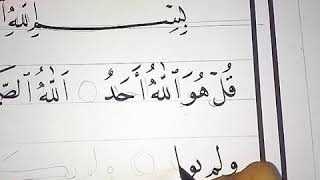 بِسْمِ اللّٰهِ
قُلْ هُوَ ٱللّٰهُ أَحَدٌ ۝ ٱللّٰهُ ٱلصَّ
ولم يو